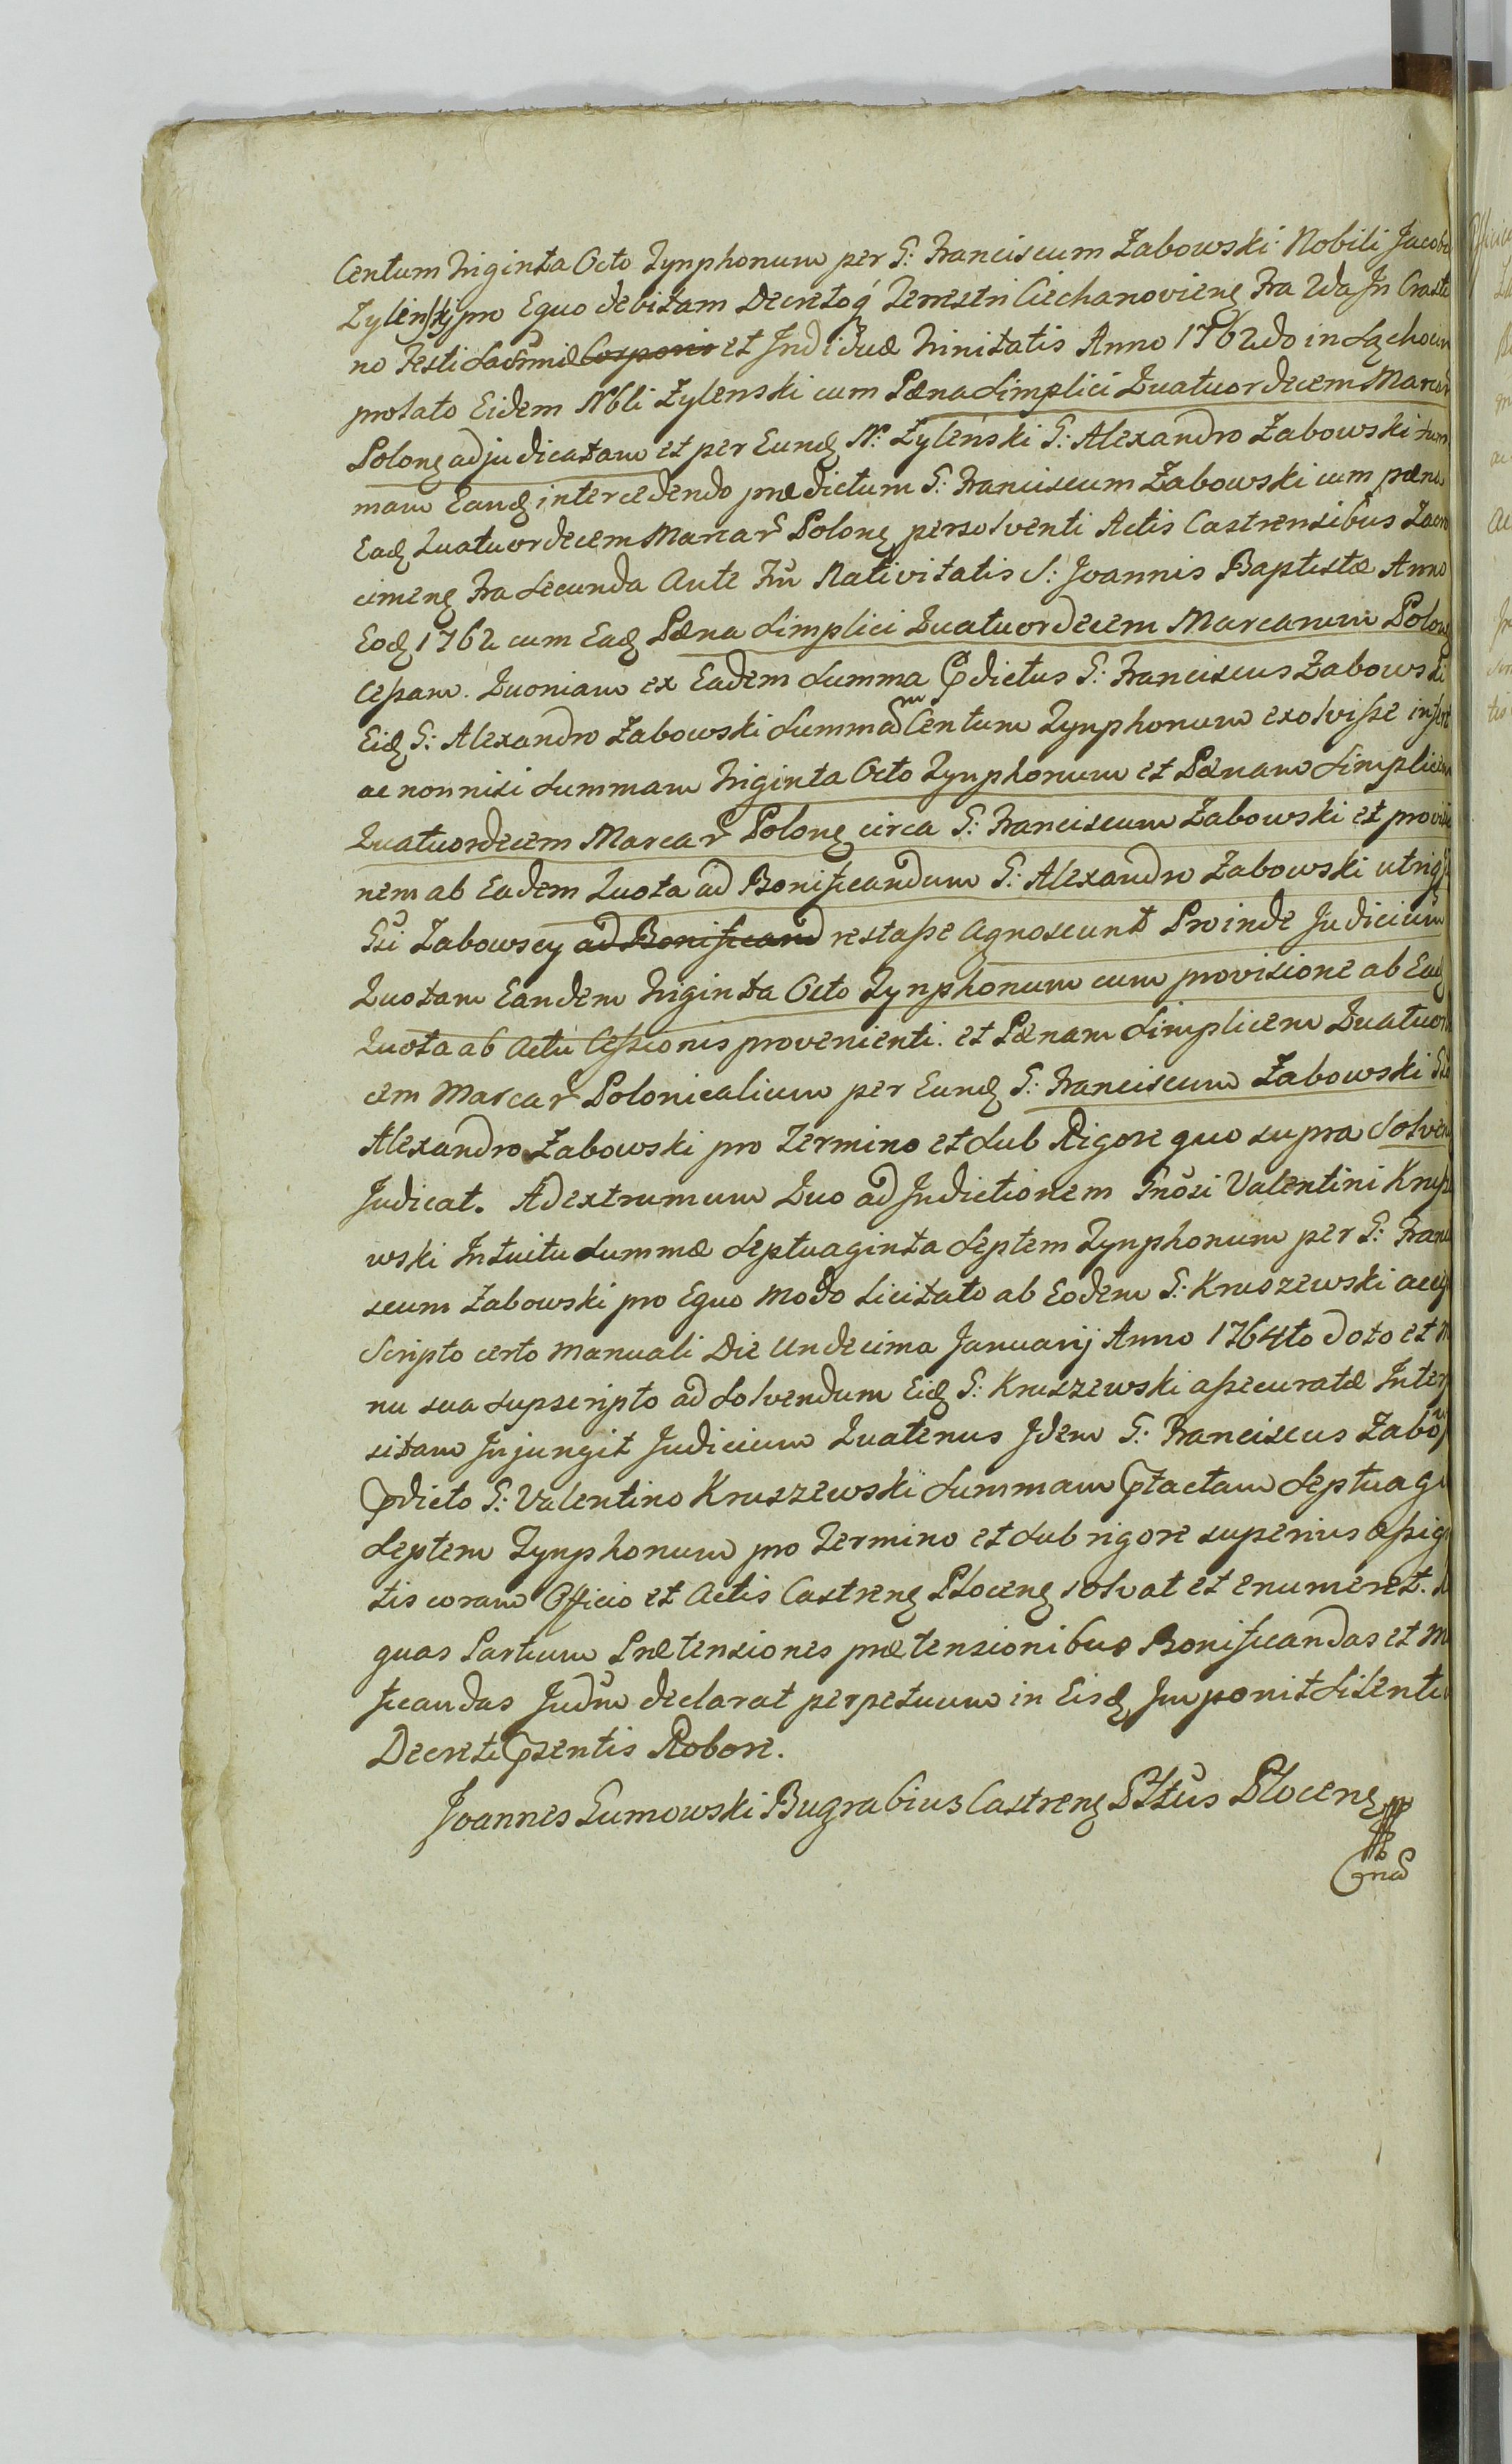 Centum Triginta Octo Tynphonum per G: Franciscum Żabowski Nobili Jacobo
Zylenskj pro Equo debitam Decretoq Terrestri Ciechanovieng Fra 2da In Crasti
no Festi Sacrmæ Corporis et Individuæ Trinitatis Anno 1762do in Lącho
prolato Eidem Nbli Zylenski cum Pæna Simplici Quatuordecem Marcar
Polong adjudicatam et per Eundg N: Zyleński G: Alexandro Żabowski Sum
mam Eandg intercedendo prædictum G: Franciscum Żabowski cum pæna
Eadg Quatuordecem Marcar Polong persolventi Actis Castrensibus Zacro
cimeng Fra Secunda Ante Ftu Nativitatis S: Joannis Baptistæ Anno
Eodg 1762 cum Eadg Pæna Simplici Quatuordecem Marcarum Polong
Cessam. Quoniam ex Eadem Summa Pdictus G: Franciscus Żabowski
Eidg G: Alexandro Żabowski Summam Centum Tynphonum exolvisse infert
ac non nisi Summam Triginta Octo Tynphonum et Pænam Simplicem
Quatuordecem Marcar Polong circa G: Franciscum Żabowski et provisio
nem ab Eadem Quota ad Bonificandum G: Alexandro Żabowski utriq
Gsi Żabowscy ad Bonificand restasse Agnoscunt Proinde Judicium
Quotam Eandem Triginta Octo Tynphonum cum provisione ab Eadg
Quota ab Actu Cessionis provenienti. et Pænam Simplicem Quatuord
cem Marcar Polonicalium per Eundg G: Franciscum Żabowski Gso
Alexandro Żabowski pro Termino et Sub Rigore quo supra Solven
Judicat. Ad extremum Quo ad Indictionem Gnosi Valentini Krusze
wski Intuitu Summæ Septuaginta Septem Tynphonum per G: Franci
scum Żabowski pro Equo modo licitato ab Eodem G: Kruszewski accep
Scripto certo manuali Die Undecima Januarij Anno 1764to dato et ma
nu sua supscripto ad Solvendum Eidg G: Kruszewski assecuratæ Interpo
sitam Injungit Judicium Quatenus Idem G: Franciscus Żabow
Pdicto G: Valentino Kruszewski Summam Ptactam Septuagi
Septem Tynphonum pro Termino et Sub rigore superius assigna
tis coram Officio et Actis Castreng Ploceng solvat et enumeret. Reli
quas Partium Prætensiones prætensionibus Bonificandas et m
ficandas Judm declarat perpetuum in Eisdg Imponit Silentiu
Decreti Psentis Robore.
Joannes Gumowski Bugrabius Castreng Pltus Ploceng